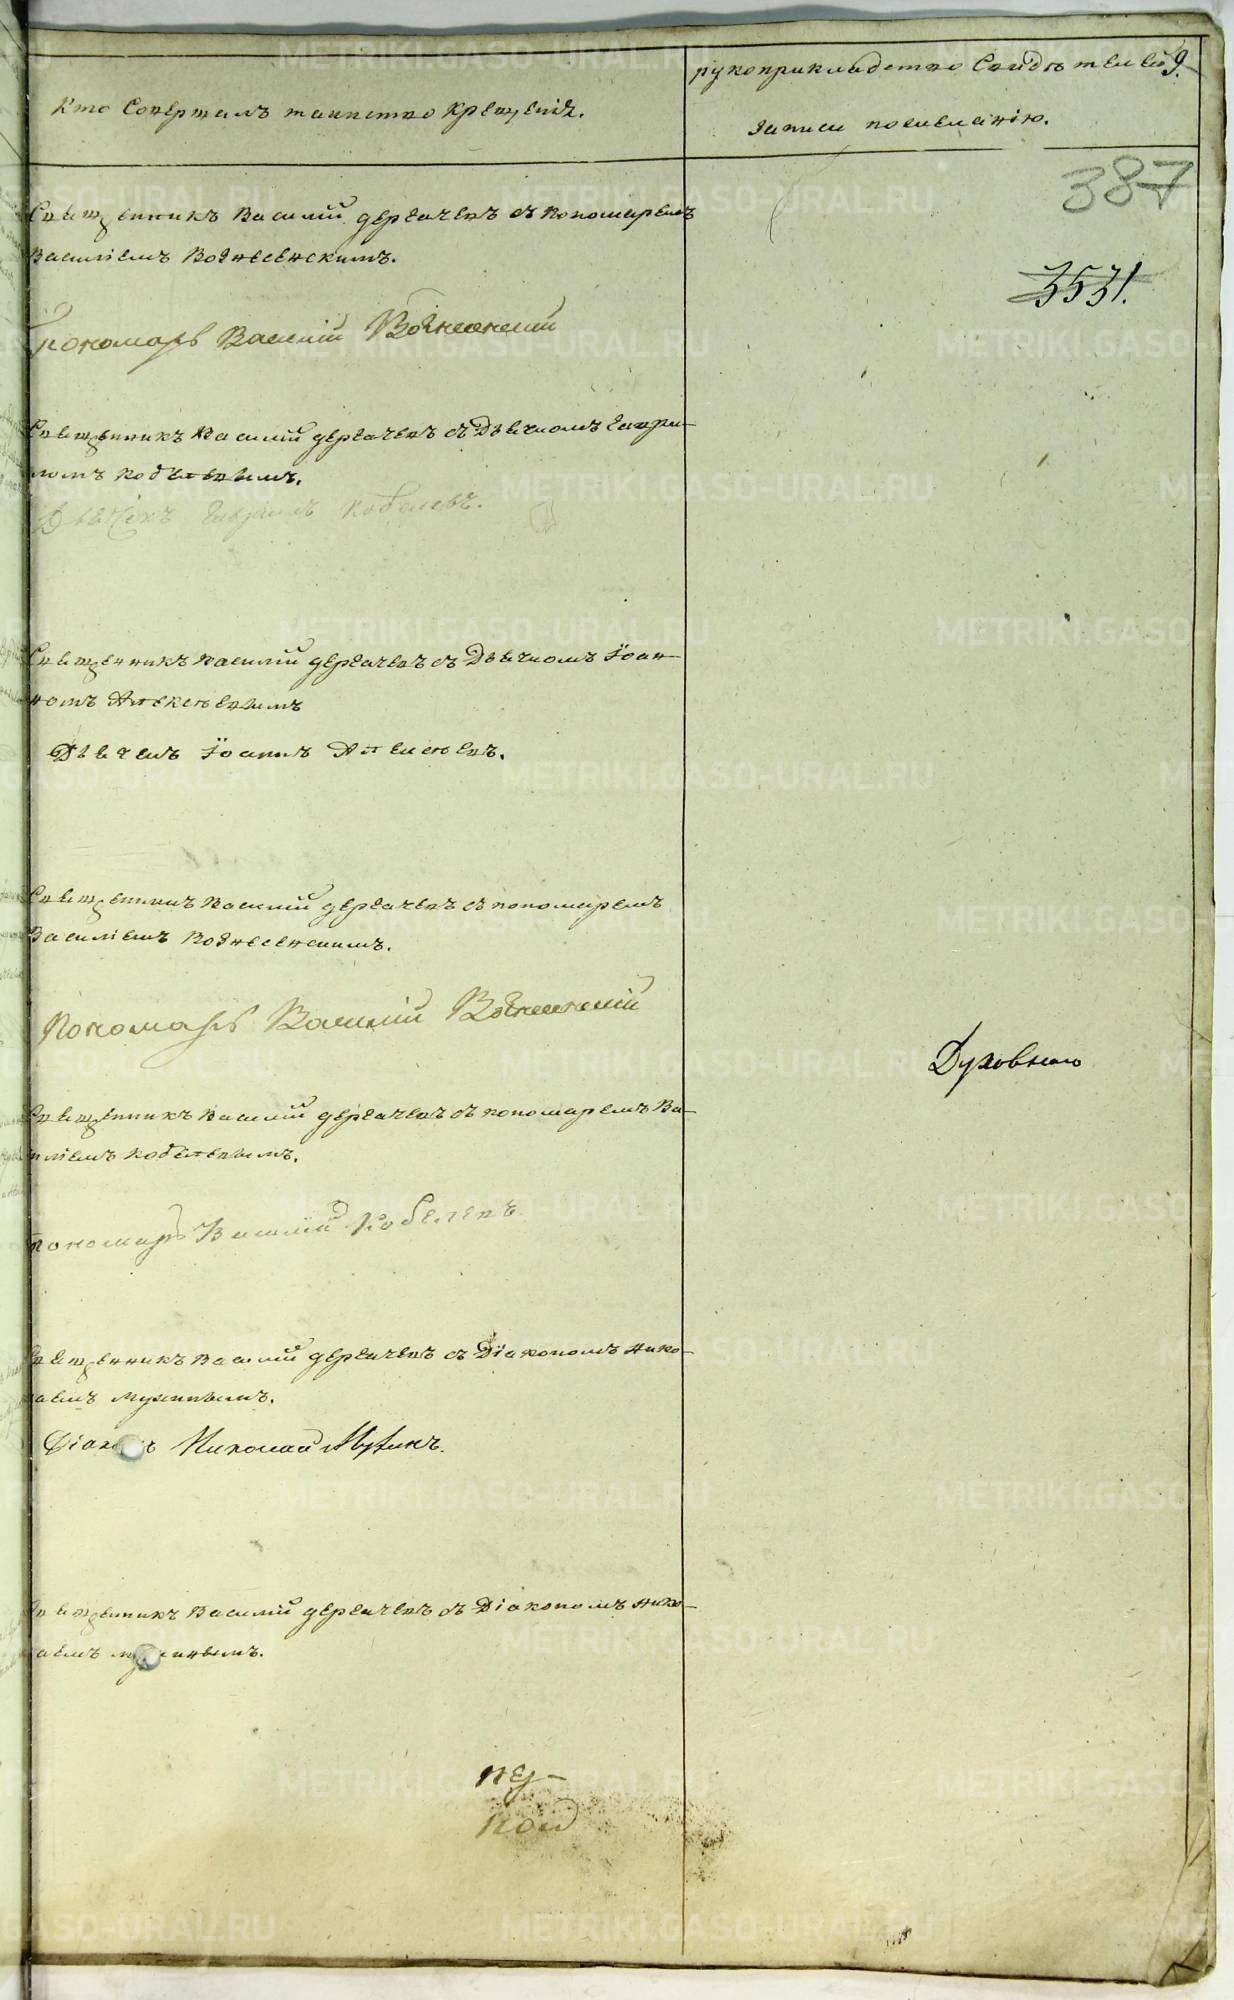 Кто Совершалъ таинство Крещенія.
рукоприкладство Свидѣтелей
записи по желанію.
9.
387
3531.
Священникъ Василій Дергачевъ съ пономаремъ
Василіемъ Вознесенскимъ.
Пономарь Василій Вознесенский
Священникъ Василій Дергачевъ съ Дьячкомъ Гаври-
ломъ Кобелевымъ.
Дьячекъ Гавріилъ Кобелевъ.
Священникъ Василій Дергачевъ съ Дьячкомъ Іоан-
номъ Алексѣевымъ
Дьячекъ Іоаннъ Алексѣевъ.
Священникъ Василій Дергачевъ съ пономаремъ
Василіемъ Вознесенскимъ.
Пономарь Василій Вознесенскій
Духовнаго
Священникъ Василій Дергачевъ съ пономаремъ Ва-
силіемъ Кобелевымъ.
Пономарь Василій Кобелевъ
Священникъ Василій Дергачевъ съ Діакономъ Нико-
лаемъ Мухинымъ.
Діаконъ Николай Мухинъ.
Священникъ Василій Дергачевъ съ Діакономъ Нико-
лаемъ Мухинымъ.
METRIKI.GASO-URAL.RU